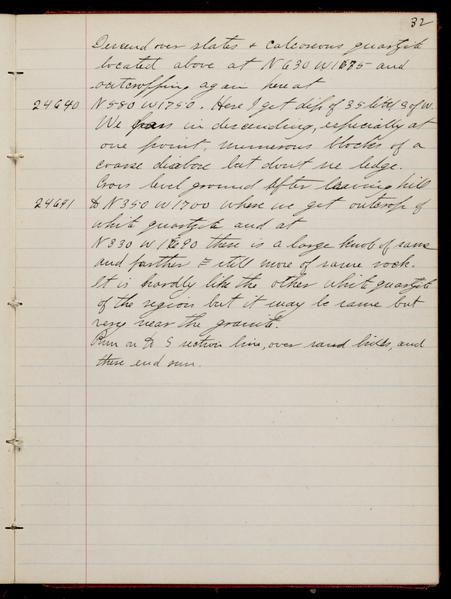 32
Descend over slates & calcareous quartzite
located above at N 630 W 1675 and
outcropping again here at
24640 N 580 W 1750. Here I get dip of 35 to S of W.
We pass in descending, especially at
one point, numerous blocks of a
coarse diabase but dont see ledge.
Cross level ground after leaving hill
24641 to N 350 W 1700 where we get outcrop of
white quartzite and at
N 330 W 1690 there is a large knob of same
and farther E still more of same rock.
It is hardly like the other white quartzite
of the region but it may be same but
very near the granite.
Run on to S section line, over sand hills, and
there end run.